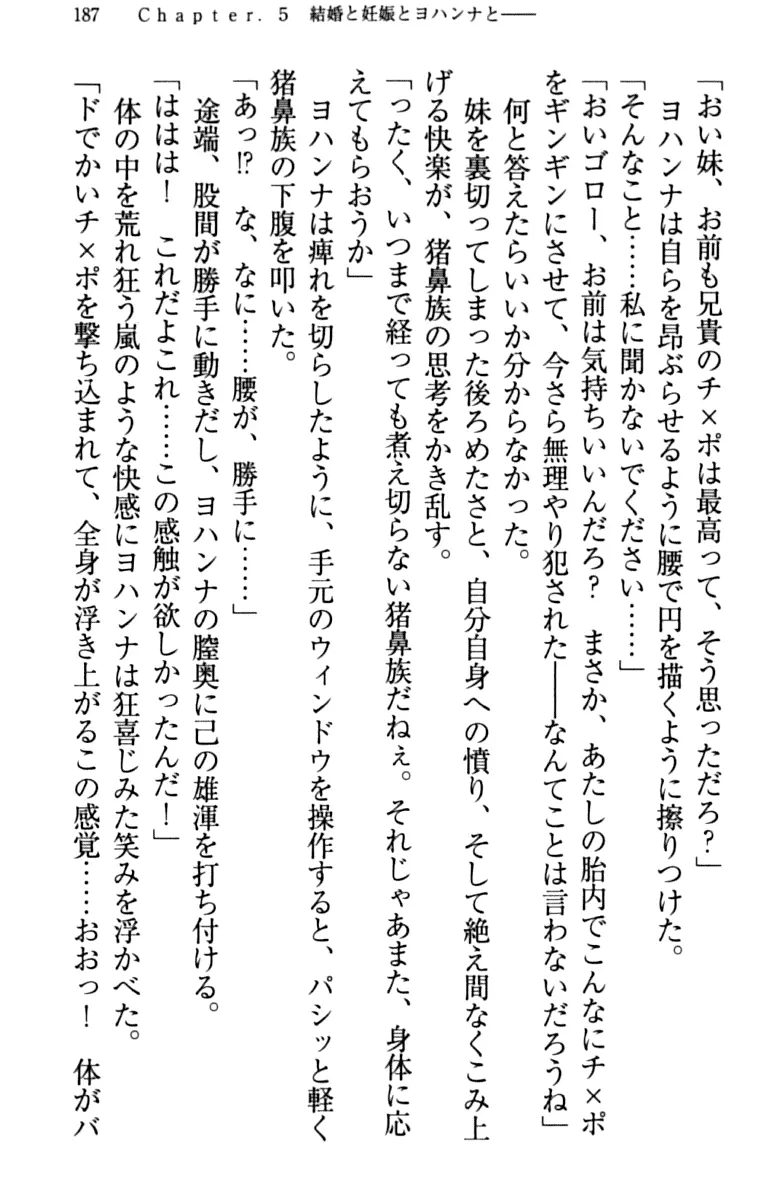 187　Chapter. 5　結婚と妊娠とヨハンナと――
「おい妹、お前も兄貴のチ×ポは最高って、そう思っただろ？」
　ヨハンナは自らを昂ぶらせるように腰で円を描くように擦りつけた。
「そんなこと……私に聞かないでください……」
「おいゴロー、お前は気持ちいいんだろ？　まさか、あたしの胎内でこんなにチ×ポ
をギンギンにさせて、今さら無理やり犯された――なんてことは言わないだろうね」
　何と答えたらいいか分からなかった。
　妹を裏切ってしまった後ろめたさと、自分自身への憤り、そして絶え間なくこみ上
げる快楽が、猪鼻族の思考をかき乱す。
「ったく、いつまで経っても煮え切らない猪鼻族だねぇ。それじゃあまた、身体に応
えてもらおうか」
　ヨハンナは痺れを切らしたように、手元のウィンドウを操作すると、パシッと軽く
猪鼻族の下腹を叩いた。
「あっ!?　な、なに……腰が、勝手に……」
　途端、股間が勝手に動きだし、ヨハンナの膣奥に己の雄渾を打ち付ける。
「ははは！　これだよこれ……この感触が欲しかったんだ！」
　体の中を荒れ狂う嵐のような快感にヨハンナは狂喜じみた笑みを浮かべた。
「ドでかいチ×ポを撃ち込まれて、全身が浮き上がるこの感覚……おおっ！　体がバ